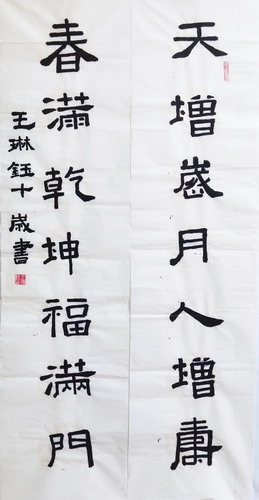 天增歲月人增壽
春滿乾坤福滿門
王琳鈺十歲書